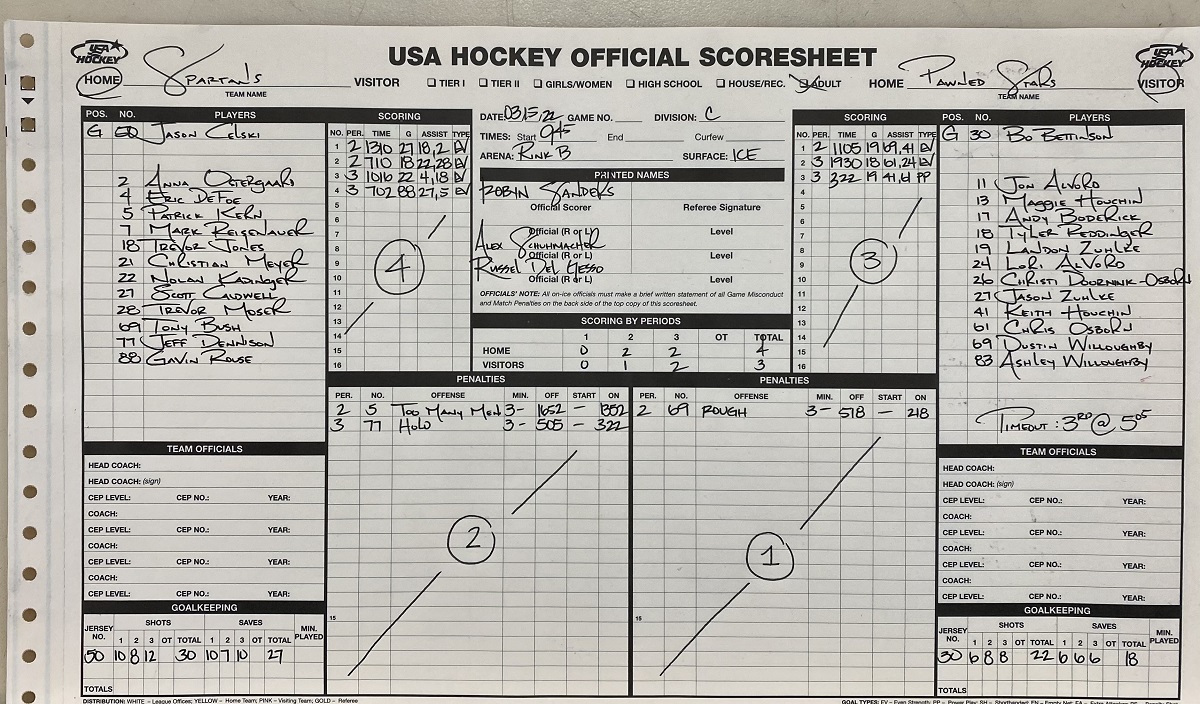 USA HOCKEY OFFICIAL SCORESHEET
USA HOCKEY
USA HOCKEY
HOME Spartans VISITOR TIER I TIER II GIRLS/WOMEN HIGH SCHOOL HOUSE/REC. ADULT HOME Pawned Stars VISITOR
TEAM NAME TEAM NAME
POS. NO. PLAYERS
G Jason Celski
2 Anna Ostergaard
4 Eric DeFoe
5 Patrick Kern
7 Mark Reigenauer
18 Trevor Jones
21 Christian Meyer
22 Nolan
27 Scott Caldwell
28 Trevor Moser
69 Tony Bush
77 Jeff Dennison
88 Gavin Rouse
SCORING
NO. PER. TIME G ASSIST TYPE
1 2 1310 27 18,2 EV
2 2 710 18 22,28 EV
3 3 1016 22 4,18 EV
4 3 702 88 27,5 EV
5
6
7
8
9
10
11
12
13
14
15
16
4
DATE 03,15,22 GAME NO. DIVISION: C
TIMES: Start 945 End Curfew
ARENA: Rink B SURFACE: ICE
PRINTED NAMES
Robyn Sanders
Official Scorer Referee Signature
Official (R or L) Level
Alex Schuhmacher
Official (R or L) Level
Russel Del Gesso
Official (R or L) Level
OFFICIALS' NOTE: All on-ice officials must make a brief written statement of all Game Misconduct
and Match Penalties on the back side of the top copy of this scoresheet.
SCORING BY PERIODS
1 2 3 OT TOTAL
HOME 0 2 2 4
VISITORS 0 1 2 3
SCORING
NO. PER. TIME G ASSIST TYPE
1 2 1105 19 69,41 EV
2 3 1930 18 61,24 EV
3 3 322 19 41,61 PP
4
5
6
7
8
9
10
11
12
13
14
15
16
3
POS. NO. PLAYERS
G 30 Bo Bettinson
11 Jon Alvoro
13 Maggie Houchin
17 Andy Boderick
18 Tyler Reddinger
19 Landon Zuhlke
24 Lori Alvoro
26 Christi Doornink-Osborn
27 Jason Zuhlke
41 Keith Houchin
61 Chris Osborn
69 Dustin Willoughby
83 Ashley Willoughby
Timeout: 3RD @ 505
PENALTIES
PER. NO. OFFENSE MIN. OFF START ON
2 5 Too Many Men 3- 1652 - 1352
3 77 Hold 3- 505 - 322
2
15
PENALTIES
PER. NO. OFFENSE MIN. OFF START ON
2 69 ROUGH 3- 518 - 218
1
15
TEAM OFFICIALS
HEAD COACH:
HEAD COACH: (sign)
CEP LEVEL: CEP NO.: YEAR:
COACH:
CEP LEVEL: CEP NO.: YEAR:
COACH:
CEP LEVEL: CEP NO.: YEAR:
COACH:
CEP LEVEL: CEP NO.: YEAR:
GOALKEEPING
JERSEY NO. SHOTS SAVES MIN. PLAYED
1 2 3 OT TOTAL 1 2 3 OT TOTAL
50 10 8 12 30 10 7 10 27
TOTALS
TEAM OFFICIALS
HEAD COACH:
HEAD COACH: (sign)
CEP LEVEL: CEP NO.: YEAR:
COACH:
CEP LEVEL: CEP NO.: YEAR:
COACH:
CEP LEVEL: CEP NO.: YEAR:
COACH:
CEP LEVEL: CEP NO.: YEAR:
GOALKEEPING
JERSEY NO. SHOTS SAVES MIN. PLAYED
1 2 3 OT TOTAL 1 2 3 OT TOTAL
30 6 8 8 22 6 6 6 18
TOTALS
DISTRIBUTION: WHITE – League Offices; YELLOW – Home Team; PINK – Visiting Team; GOLD – Referee
GOAL TYPES: EV – Even Strength; PP – Power Play; SH – Shorthanded; EN – Empty Net;